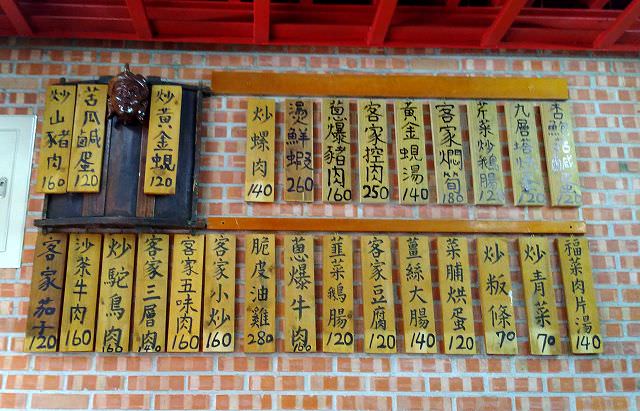 炒山豬肉 160
苦瓜鹹蛋 120
炒黃金蜆 120
炒螺肉 140
燙鮮蝦 260
蔥爆豬肉 160
客家控肉 250
黃金蜆湯 140
客家燜筍 180
芹菜炒鵝腸 120
九層塔 120
120
客家茄子 120
沙茶牛肉 160
炒駝鳥肉 160
客家三層肉
客家五味肉 160
客家小炒 160
脆皮油雞 280
蔥爆牛肉 160
韮菜鵝腸 120
客家豆腐 120
薑絲大腸 140
菜脯烘蛋 120
炒粄條 70
炒青菜 70
福菜肉片湯 140